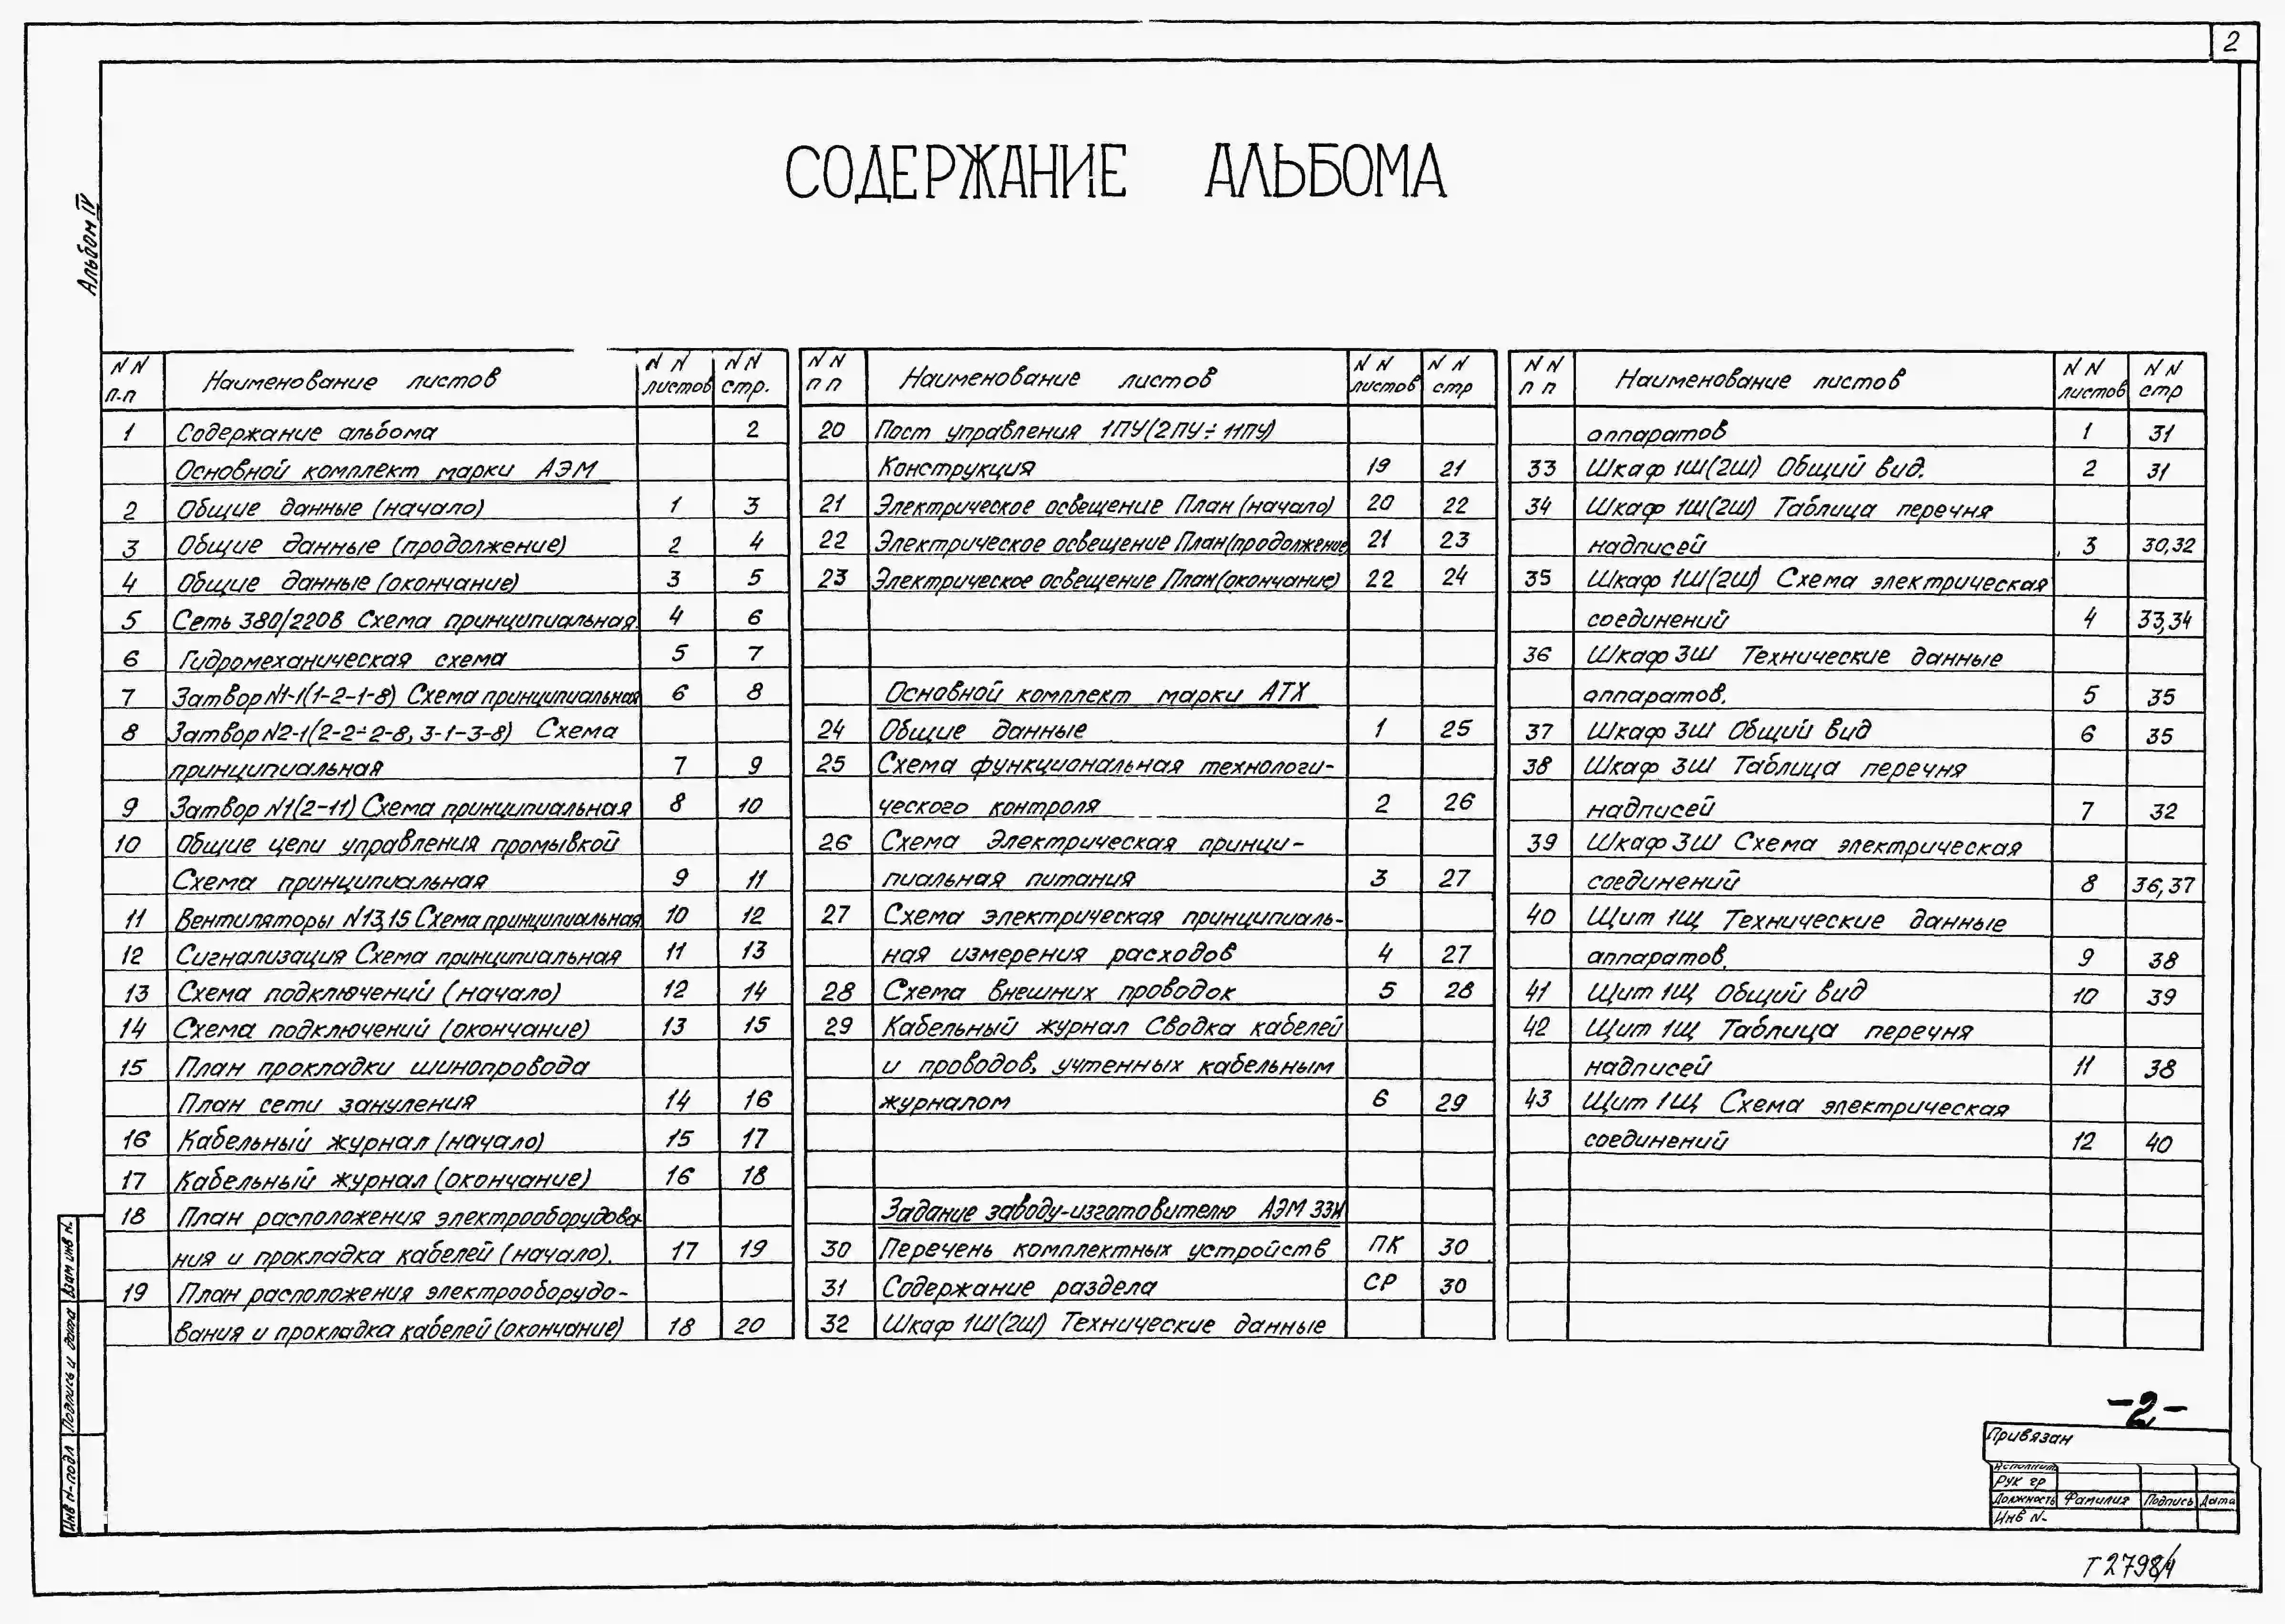 2
СОДЕРЖАНИЕ АЛЬБОМА
Альбом IV
NN п-п Наименование листов NN листов NN стр.
1 Содержание альбома 2
Основной комплект марки АЭМ
2 Общие данные (начало) 1 3
3 Общие данные (продолжение) 2 4
4 Общие данные (окончание) 3 5
5 Сеть 380/220В Схема принципиальная. 4 6
6 Гидромеханическая схема 5 7
7 Затвор N1-1(1-2-1-8) Схема принципиальная 6 8
8 Затвор N2-1(2-2÷2-8, 3-1-3-8) Схема
принципиальная 7 9
9 Затвор N1(2-11) Схема принципиальная 8 10
10 Общие цепи управления промывкой
Схема принципиальная 9 11
11 Вентиляторы N13,15 Схема принципиальная. 10 12
12 Сигнализация Схема принципиальная 11 13
13 Схема подключений (начало) 12 14
14 Схема подключений (окончание) 13 15
15 План прокладки шинопровода
План сети зануления 14 16
16 Кабельный журнал (начало) 15 17
17 Кабельный журнал (окончание) 16 18
18 План расположения электрооборудова-
ния и прокладка кабелей (начало). 17 19
19 План расположения электрооборудо-
вания и прокладка кабелей (окончание) 18 20
NN пп Наименование листов NN листов NN стр
20 Пост управления 1ПУ(2ПУ÷11ПУ)
Конструкция 19 21
21 Электрическое освещение План (начало) 20 22
22 Электрическое освещение План(продолжение 21 23
23 Электрическое освещение План(окончание) 22 24
Основной комплект марки АТХ
24 Общие данные 1 25
25 Схема функциональная технологи-
ческого контроля 2 26
26 Схема Электрическая принци-
пиальная питания 3 27
27 Схема электрическая принципиаль-
ная измерения расходов 4 27
28 Схема внешних проводок 5 28
29 Кабельный журнал Сводка кабелей
и проводов, учтенных кабельным
журналом 6 29
Задание заводу-изготовителю АЭМ ЗЗИ
30 Перечень комплектных устройств ПК 30
31 Содержание раздела СР 30
32 Шкаф 1Ш(2Ш) Технические данные
NN пп Наименование листов NN листов NN стр
аппаратов 1 31
33 Шкаф 1Ш(2Ш) Общий вид. 2 31
34 Шкаф 1Ш(2Ш) Таблица перечня
надписей 3 30,32
35 Шкаф 1Ш(2Ш) Схема электрическая
соединений 4 33,34
36 Шкаф 3Ш Технические данные
аппаратов. 5 35
37 Шкаф 3Ш Общий вид 6 35
38 Шкаф 3Ш Таблица перечня
надписей 7 32
39 Шкаф 3Ш Схема электрическая
соединений 8 36,37
40 Щит 1Щ Технические данные
аппаратов. 9 38
41 Щит 1Щ Общий вид 10 39
42 Щит 1Щ Таблица перечня
надписей 11 38
43 Щит 1Щ Схема электрическая
соединений 12 40
Взам инв N
Подпись и дата
Инв N-подл
-2-
Привязан
Исполнит
Рук гр
Должность Фамилия Подпись Дата
Инв N-
Т2798/4